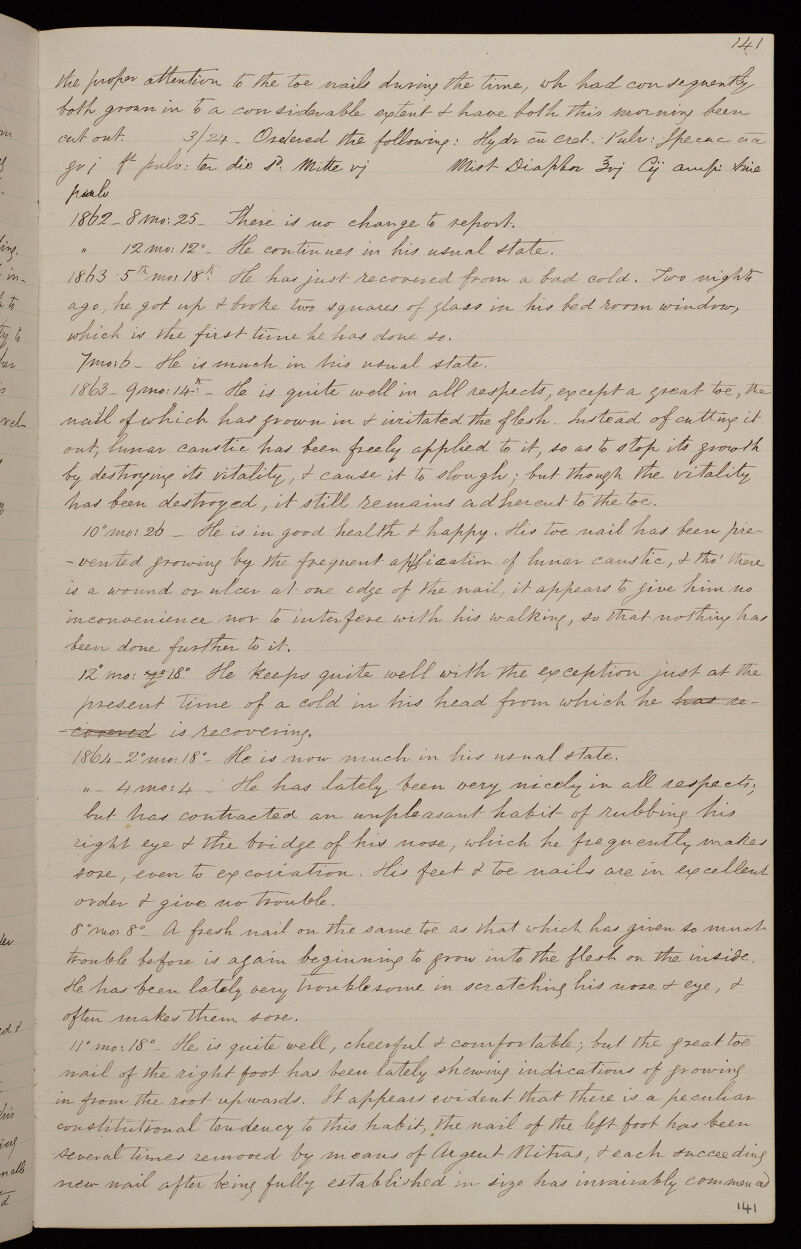 141
the proper attention to the toe nails during the time, wh had consequently
both grown in to a considerable extent & have both this morning been
cut out. 3/24 - Ordered the following: Hydr cu cret. Pulv: Ipecac āā
gr j ft pulv: ter die sd. Mitte vj Mist Diaphor ℥vj Cÿ ampl: sine
pulv
1862 - 8 mo: 25 - There is no change to report.
" 12 mo: 12° - He continues in his usual state.
1863 - 5th mo: 18th. He has just recovered from a bad cold. Two nights
ago, he got up & broke two squares of glass in his bed room window,
which is the first time he has done so.
7 mo: 6 - He is much in his usual state.
1863 - 9 mo: 14th - He is quite well in all respects, except a great toe, the
nail of which has grown in & irritated the flesh. Instead of cutting it
out, lunar caustic has been freely applied to it, so as to stop its growth
by destroying its vitality, & cause it to slough; but though the vitality
has been destroyed, it still remains adherent to the toe.
10° mo: 26 - He is in good health & happy. His toe nail has been pre-
-vented growing by the frequent application of lunar caustic, & tho' there
is a wound or ulcer at one edge of the nail, it appears to give him no
inconvenience nor to interfere with his walking, so that nothing has
been done further to it.
12° mo: 18° He keeps quite well with the exception just at the
present time of a cold in his head from which he has re-
-covered is recovering.
1864 - 2° mo: 18° - He is now much in his usual state.
" - 4 mo: 4 - He has lately been very nicely in all respects;
but has contracted an unpleasant habit of rubbing his
right eye & the bridge of his nose, which he frequently makes
sore, even to excoriation. His feet & toe nails are in excellent
order & give no trouble.
8° mo: 8° A fresh nail on the same toe as that which has given so much
trouble before is again beginning to grow into the flesh on the inside.
He has been lately very troublesome in scratching his nose & eye, &
often makes them sore.
11° mo: 18° - He is quite well, cheerful & comfortable; but the great toe
nail of the right foot has been lately shewing indications of growing
in from the root upwards. It appears evident that there is a peculiar
constitutional tendency to this habit, the nail of the left foot has been
several times removed by means of Argent Nitras, & each succeeding
new nail after being fully established in size has invariably commenced
141